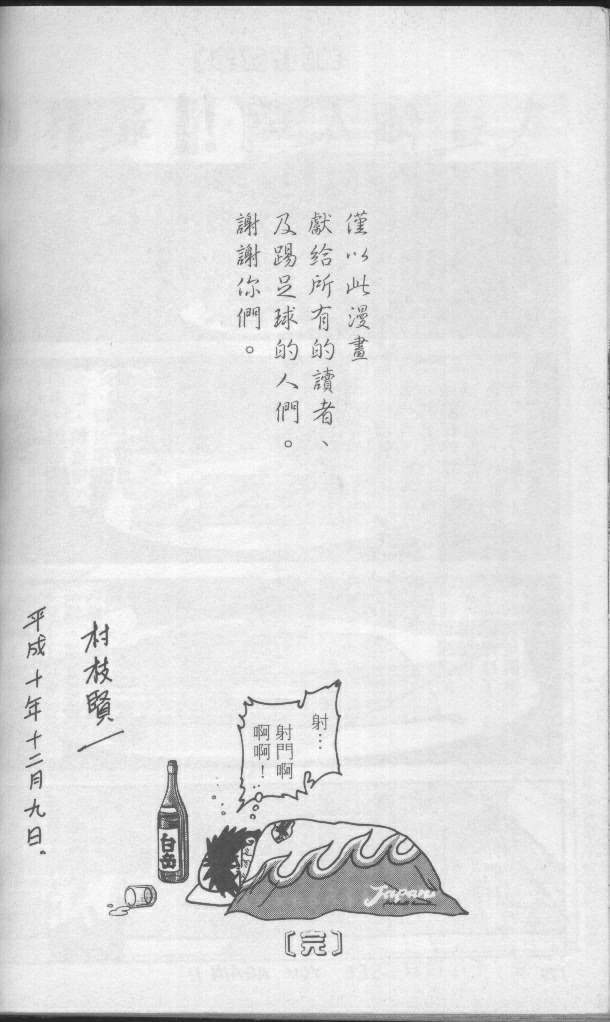 僅以此漫畫
獻給所有的讀者、
及踢足球的人們。
謝謝你們。
村枝賢一
平成十年十二月九日.
射…
射門啊
啊啊!
白岳
Japan
〔完〕